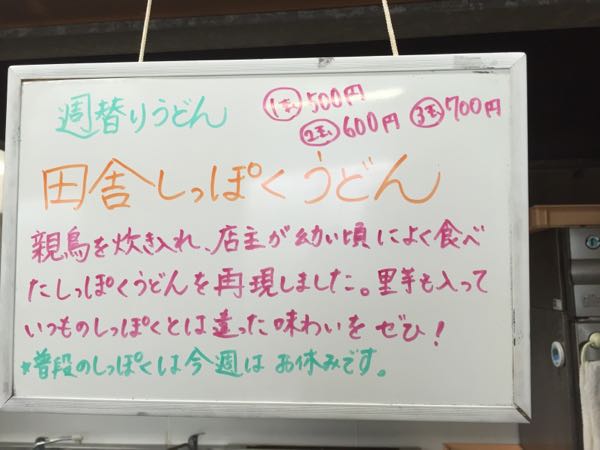 週替りうどん
①玉500円
②玉600円
③玉700円
田舎しっぽくうどん
親鳥を炊き入れ、店主が幼い頃によく食べ
たしっぽくうどんを再現しました。里芋も入って
いつものしっぽくとは違った味わいをぜひ!
*普段のしっぽくは今週はお休みです。